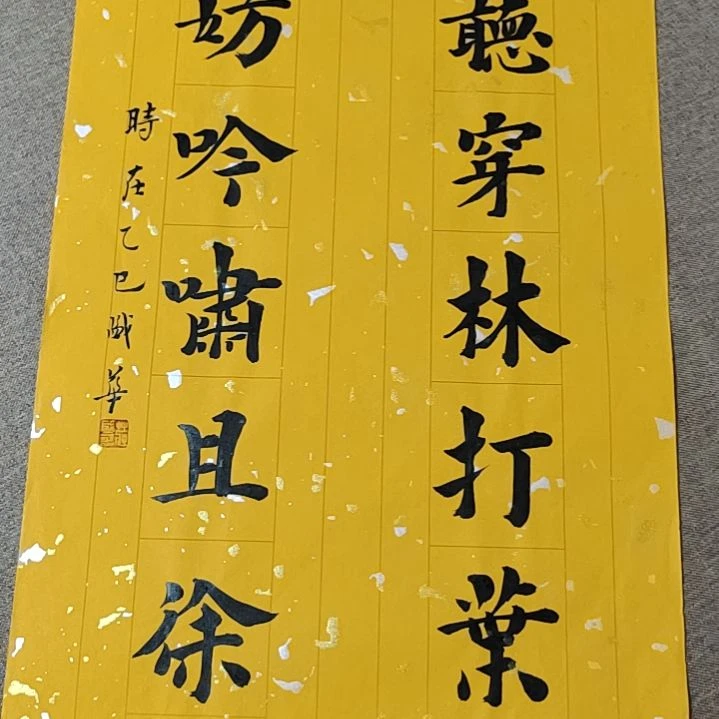 聽穿林打葉
妨吟嘯且徐
時在乙巳
華